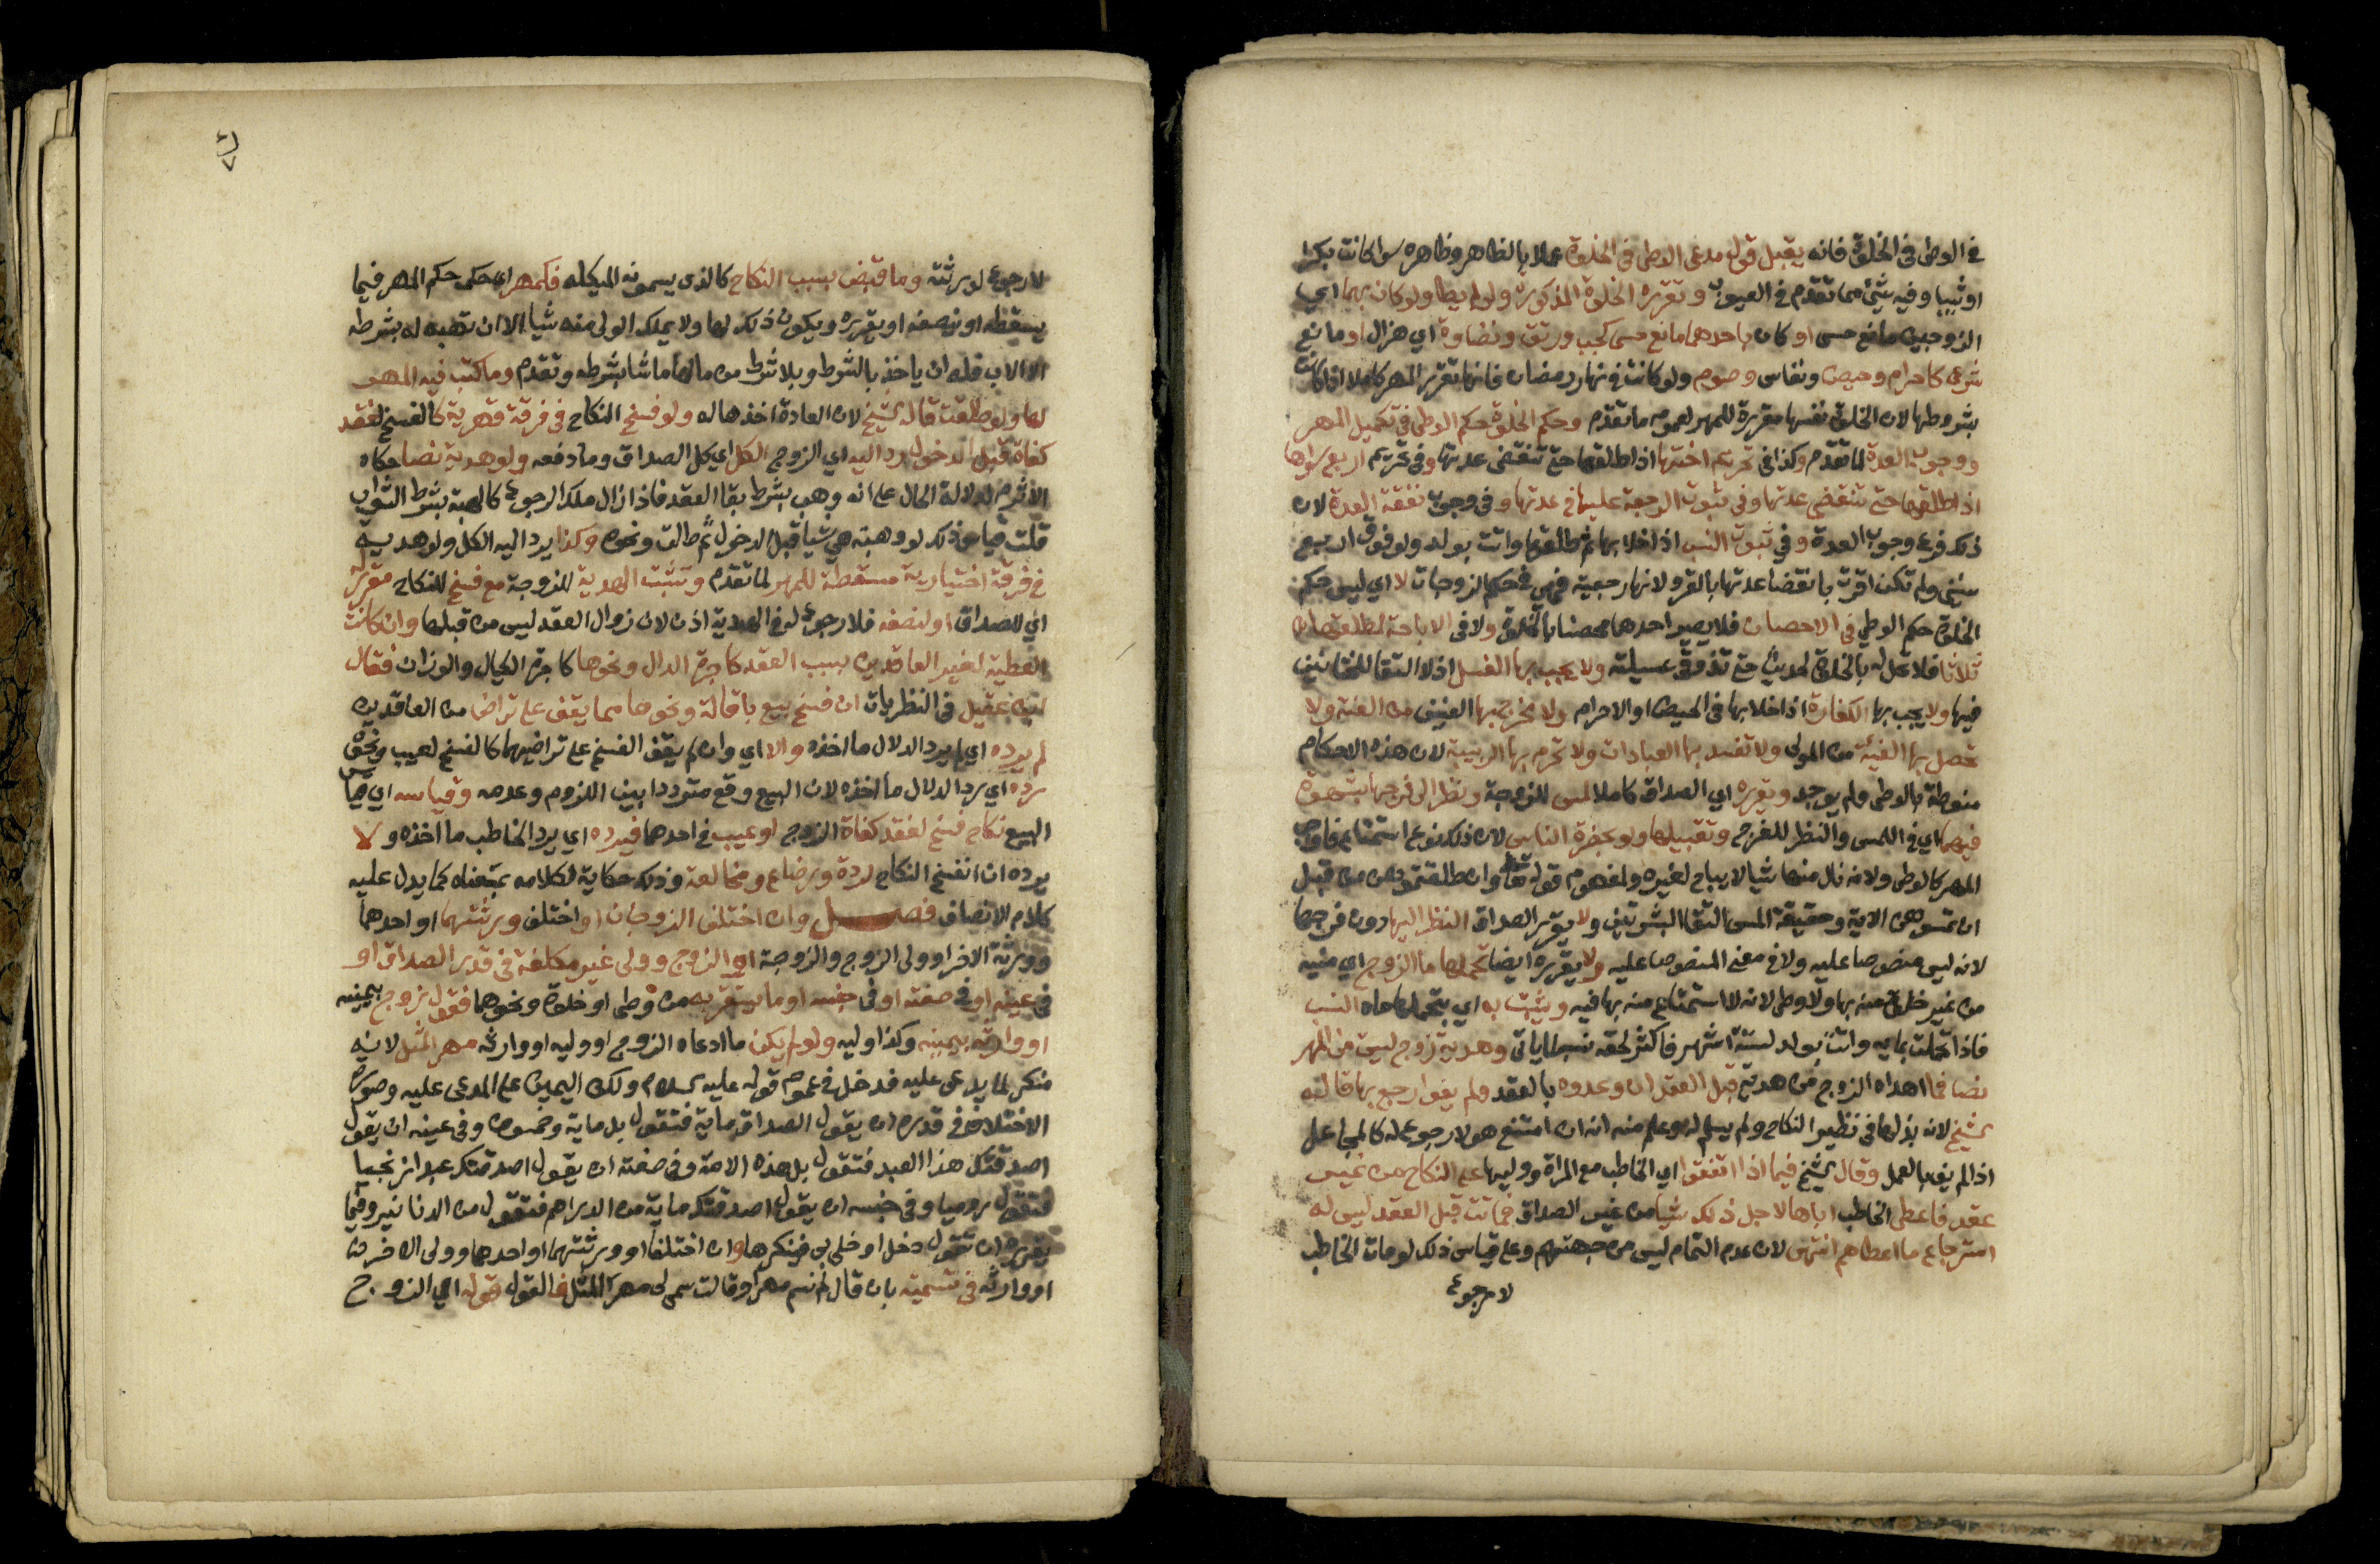 في الوطى في الخلوة فانه يقبل قول مدعي الوطى في الخلوة عملا بالظاهر وظاهره سوا كانت بكرا
او ثيبا وفيه شئ مما تقدم في العيوب وتقرره الخلوة المذكورة ولو لم يطا ولو كان بهما اي
الزوجين مانع حسى او كان باحدهما مانع حسى كجب ورتق ونضاوة اي هزال او مانع
شرعى كاحرام وحيض ونفاس وصوم ولو كانت في نهار رمضان فانها تقرر المهر كاملا اذا كانت
بشروطها لان الخلوة نفسها مقررة للمهر لعموم ما تقدم وحكم الخلوة حكم الوطى في تكميل المهر
ووجوب العدة لما تقدم وكذا في تحريم اختها اذا طلقها حتى تنقضى عدتها وفي تحريم اربع سواها
اذا طلقها حتى تنقضى عدتها وفي ثبوت الرجعة عليها في عدتها وفي وجوب نفقة العدة لان
ذلك فرع وجوب العدة وفي ثبوت النسب اذا خلا بها ثم طلقها واتت بولد ولو فوق اربع
سنين ولم تكن اقرت بانقضا عدتها بالقرو لانها رجعية فهي في حكم الزوجات لا اي ليس حكم
الخلوة حكم الوطي في الاحصان فلا يصير احدهما محصنا بالخلوة ولا في الاباحة لمطلقها
ثلاثا فلا تحل له بالخلوة لحديث حتى تذوقي عسيلته ولا يجب بها الغسل اذ لا التقا للختانين
فيها ولا يجب بها الكفارة اذا خلا بها في الحيض او الاحرام ولا يخرج بها العنين من العنة ولا
تحصل بها الفيئة من المولى ولا تفسد بها العبادات ولا تحرم بها الربيبة لان هذه الاحكام
منوطة بالوطى ولم يوجد ويقرره اي الصداق كاملا لمس للزوجة ونظر الى فرجها بشهوة
فيهما اي في اللمس والنظر للفرج وتقبيلها ولو بحضرة الناس لان ذلك نوع استمتاع فاوجب
المهر كالوطى ولانه نال منها شيا لا يباح لغيره ولمفهوم قوله تعالى وان طلقتموهن من قبل
ان تمسوهن الاية وحقيقة المس التقا البشرتين ولا يقرر الصداق النظر اليها دون فرجها
لانه ليس منصوصا عليه ولا في معنى المنصوص عليه ولا يقرره ايضا تحملها ما الزوج اي منيه
من غير خلوة منه بها ولا وطى لانه لا استمتاع منه بها فيه ويثبت به اي بتحملها ماه النسب
فاذا تحملت بمايه واتت بولد لستة اشهر فاكثر لحقه نسبه لما ياتي وهدية زوج ليست من المهر
نصا فما اهداه الزوج من هدية قبل العقد ان وعدوه بالعقد ولم يفوا رجع بها قاله
الشيخ لانه بذلها في نظير النكاح ولم يسلم له وعلم منه انه ان امتنع هو لا رجوع له كالمجاعل
اذا لم يف بالعمل وقال الشيخ فيما اذا اتفقوا اي الخاطب مع المراة ووليها على النكاح من غير
عقد فاعطى الخاطب اباها لاجل ذلك شيا من غير الصداق فماتت قبل العقد ليس له
استرجاع ما اعطاهم انتهى لان عدم التمام ليس من جهتهم وعلى قياس ذلك لو مات الخاطب
لا رجوع
لا رجوع لورثته وما قبض بسبب النكاح كالذى يسمونه الميكله فكمهر اي حكمه حكم المهر فيما
يسقطه او ينصفه او يقرره ويكون ذلك لها ولا يملك الولى منه شيا الا ان تهبه له بشرطه
الا الاب فله ان ياخذ بالشرط وبلا شرط من مالها ما شا بشرطه وتقدم وما كتب فيه المهر
لها ولو طلقت قاله الشيخ لان العادة اخذها له ولو فسخ النكاح في فرقة قهرية كالفسخ لفقد
كفاة قبل الدخول رد اليه اي الزوج الكل اي كل الصداق وما دفعه ولو هدية نصا حكاه
الاثرم لدلالة الحال على انه وهب بشرط بقا العقد فاذا زال ملك الرجوع كالهبة بشرط الثواب
قلت قياس ذلك لو وهبته هي شيا قبل الدخول ثم طالت ونحوه وكذا يرد اليه الكل ولو هدية
في فرقة اختيارية مسقطة للمهر لما تقدم وتثبت الهدية للزوجة مع فسخ للنكاح مقرر له
اي للصداق او لنصفه فلا رجوع له في الهدية اذن لان زوال العقد ليس من قبلها وان كانت
العطية لغير العاقدين بسبب العقد كاجرة الدلال ونحوها كاجرة الكيال والوزان فقال
ابن عقيل في النظريات ان فسخ بيع باقالة ونحوها مما يقف على تراض من العاقدين
لم يرده اي لم يرد الدلال ما اخذه والا اي وان لم يقف الفسخ على تراضيهما كالفسخ لعيب ونحوه
رده اي يرد الدلال ما اخذه لان البيع وقع مترددا بين اللزوم وعدمه وقياسه اي قياس
البيع نكاح فسخ لفقد كفاة الزوج او عيب في احدهما فيرده اي يرد الخاطب ما اخذه ولا
يرده ان انفسخ النكاح لردة ورضاع ومخالعة وذلك حكاية لكلامه بمعناه كما يدل عليه
كلام الانصاف فصل وان اختلف الزوجان او اختلف ورثتهما او احدهما
وورثة الاخر او ولى الزوج والزوجة او الزوج وولى غير مكلفة في قدر الصداق او
في عينه او في صفته او في جنسه او ما يستقر به من وطى او خلوة ونحوهما فقول زوج بيمينه
او وارثه بيمينه وكذا وليه ولو لم يكن ما ادعاه الزوج او وليه او وارثه مهر المثل لانه
منكر لما يدعى عليه فدخل في عموم قوله عليه السلام ولكن اليمين على المدعى عليه وصورة
الاختلاف في قدره ان يقول الصداق ماية فتقول بل ماية وخمسون وفي عينه ان يقول
اصدقتك هذا العبد فتقول بل هذه الامة وفي صفته ان يقول اصدقتك عبدا زنجيا
فتقول روميا وفي جنسه ان يقول اصدقتك ماية من الدراهم فتقول من الدنانير وفيما
يقرره ان تقول دخل او خلى بي فينكرها وان اختلفا او ورثتهما او احدهما وولى الاخر
او وارثه في تسمية بان قال لم نسم مهرا وقالت سمى لى مهر المثل فالقول قوله اي الزوج